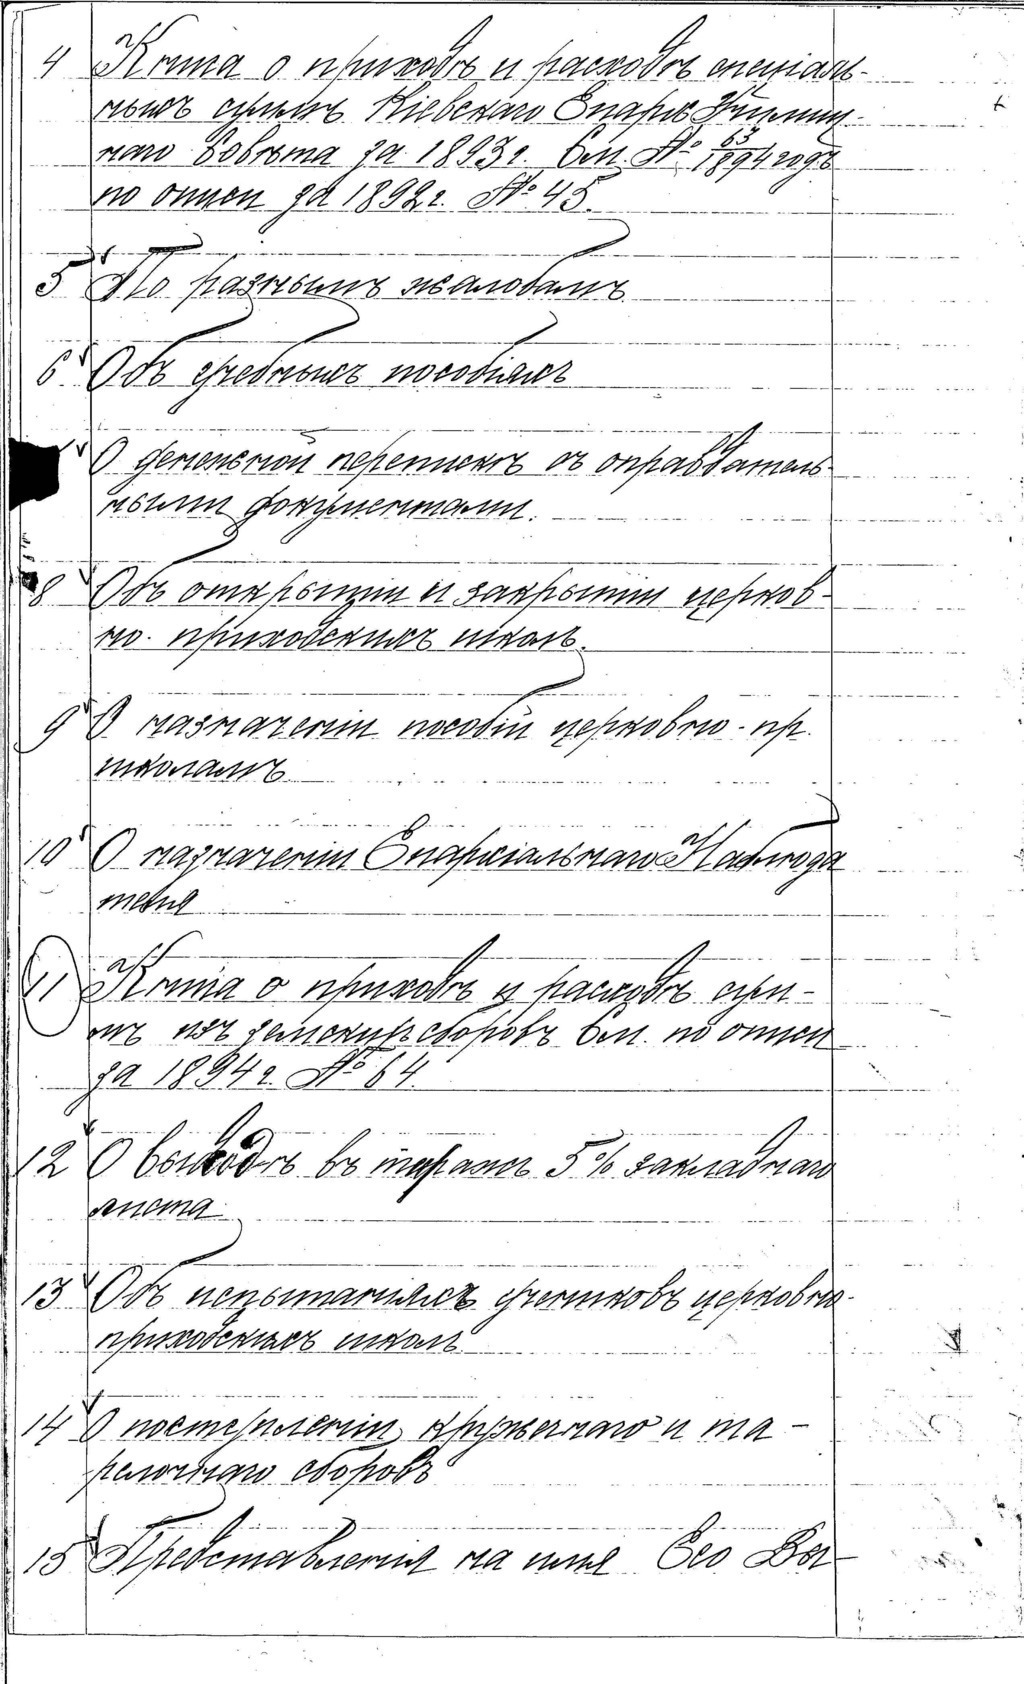 4 Книга о приходѣ и расходѣ спеціаль-
ныхъ суммъ Кіевскаго Епарх. Училищ-
наго Совѣта за 1893 г. См. № 63/1894 года
по описи за 1892 г. № 45.
5 По разнымъ жалобамъ
6 Объ учебныхъ пособіяхъ
О денежной перепискѣ съ оправдатель-
ными документами.
8 Объ открытіи и закрытіи церков-
но-приходскихъ школъ.
9 О назначеніи пособій церковно-пр.
школамъ
10 О назначеніи Епархіальнаго Наблюда
теля
11 Книга о приходѣ и расходѣ сум-
мъ изъ земскихъ сборовъ См. по описи
за 1894 г. № 64.
12 О выходѣ въ тиражъ 5% закладнаго
листа
13 Объ испытаніяхъ учениковъ церковно-
приходскихъ школъ
14 О поступленіи кружечнаго и та-
релочнаго сборовъ
15 Представленія на имя Его Вы-